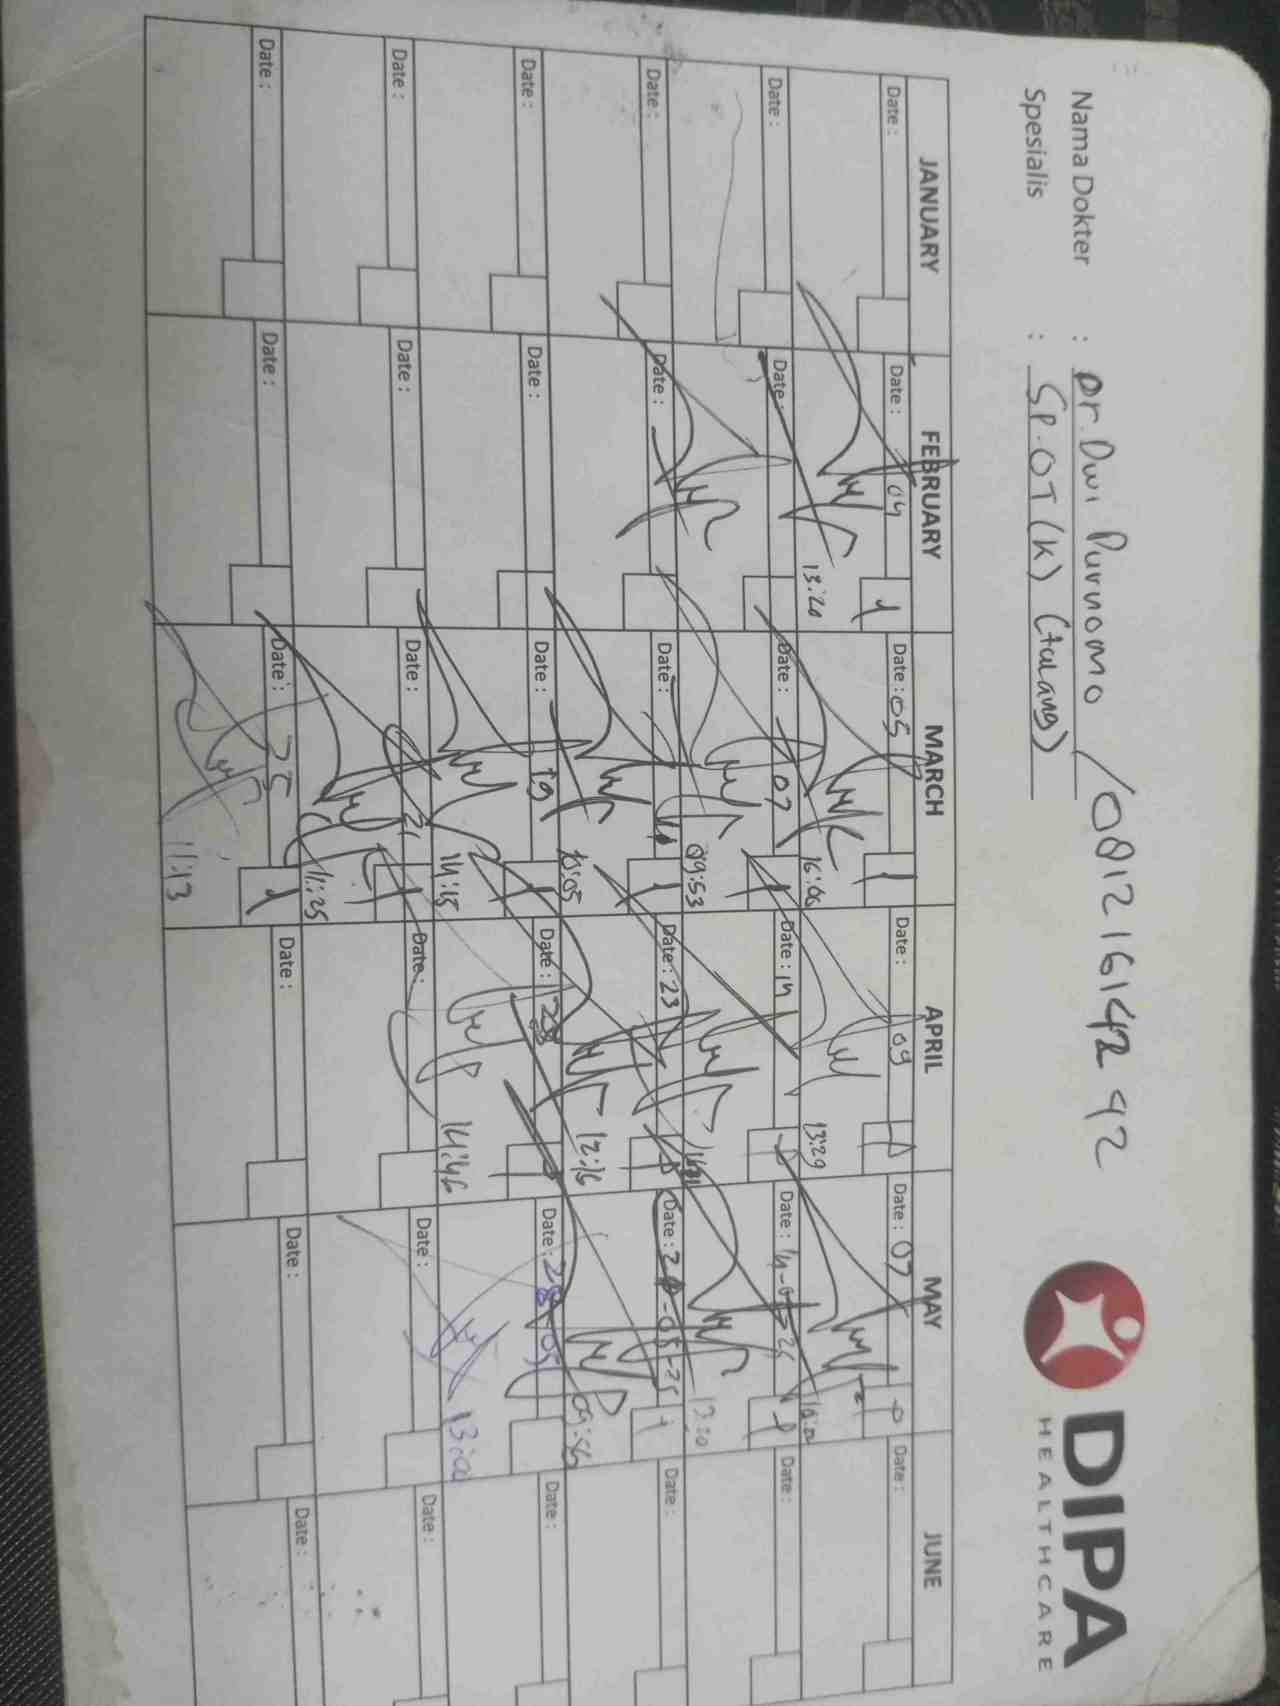 Nama Dokter : Dr. Dwi Purnomo / 081216142 92
Spesialis : Sp.OT(K) (tulang)
DIPA
HEALTHCARE
JANUARY FEBRUARY MARCH APRIL MAY JUNE
Date : Date : 04 Date : 05 Date : 09 Date : 07 Date :
13:20 16:00 13:29
Date : Date : Date : 07 Date : 14 Date : Date :
09:53 13:10
Date : Date : Date : Date : 23 Date : Date :
12:16 09:56
Date : Date : Date : 19 Date : 28 Date : 28-05 Date :
14:15 14:46 13:00
Date : Date : Date : 21 Date : Date : Date :
11:25
Date : Date : Date : 25 Date : Date : Date :
11:13